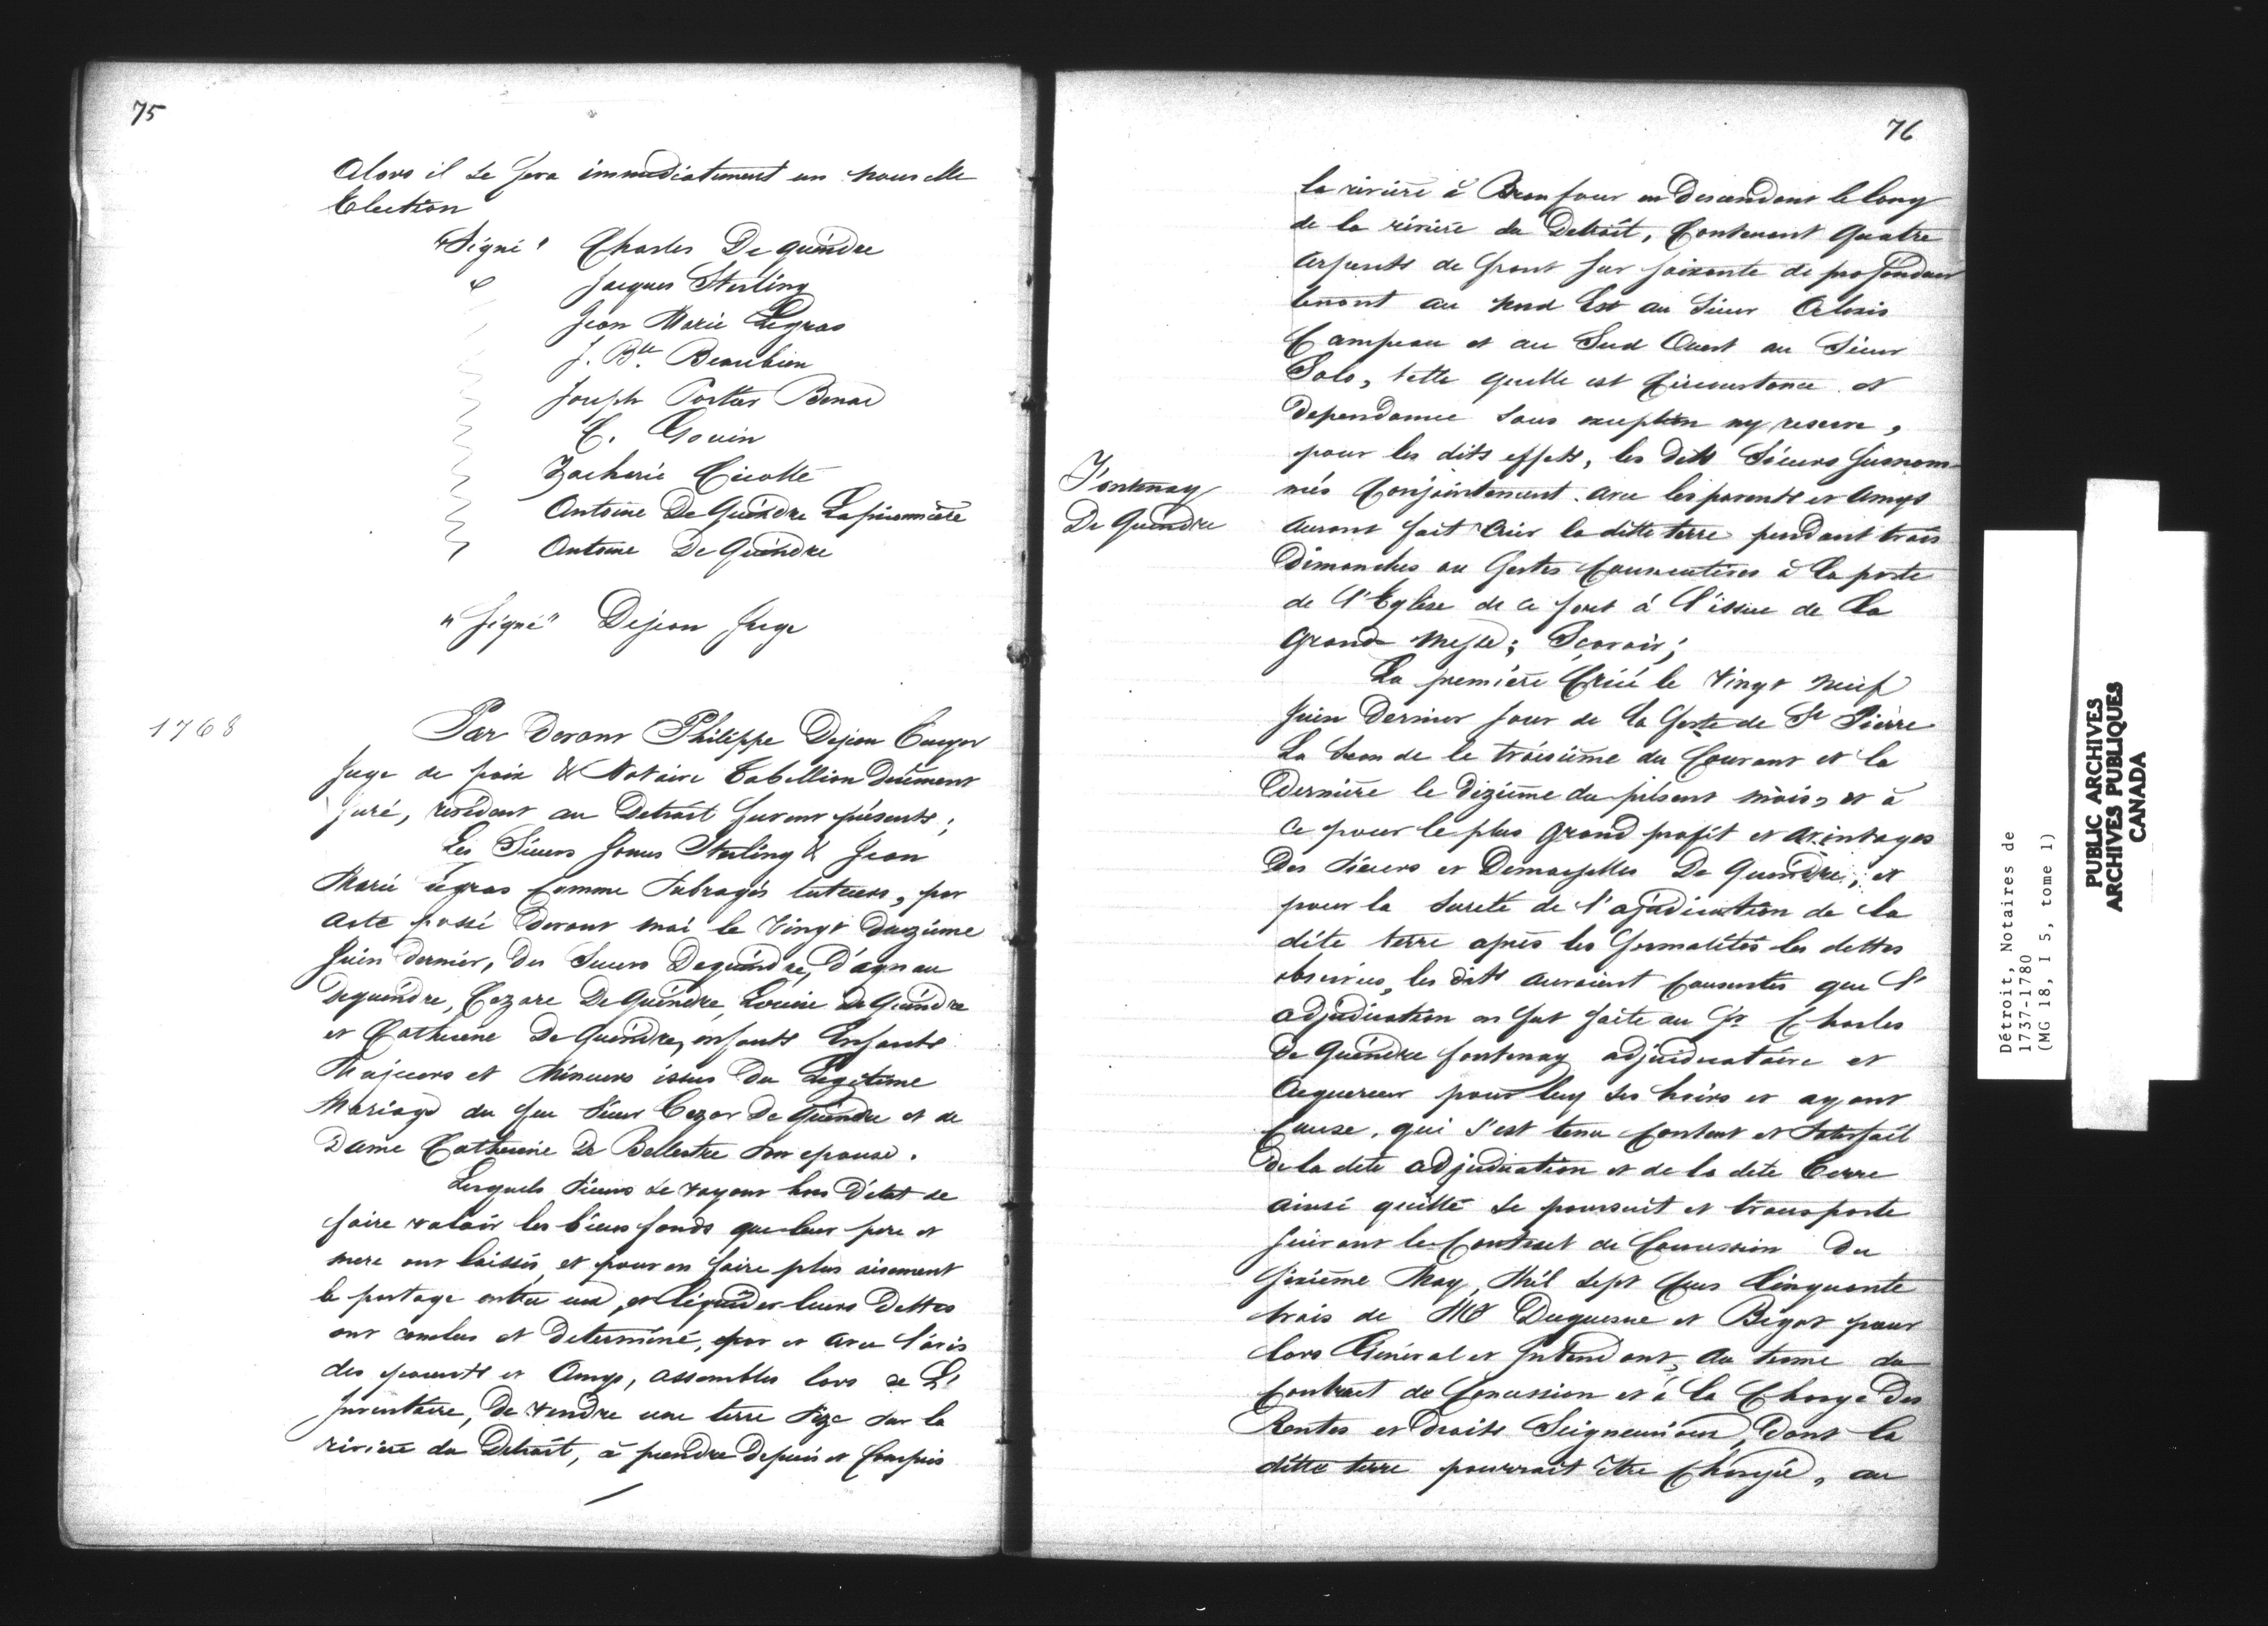 75
Alors il se fera immediatement un nouvelle
Election
"Signé" Charles De quindre
Jacques Sterling
Jean Marie Legras
J. Bte Beaubien
Joseph Portier Benac
C. Gouin
Zacharie Cicotte
Antoine De Quindre Lapicannière
Antoine De Quindre
"Signé" Dejean Juge
1768
Par devant Philippe Dejean Ecuyer
Juge de paix & Notaire Tabellion duement
juré, residant au Detroit furent présents;
Les Sieurs James Sterling & Jean
Marie Legras comme subrogés tuteurs, par
acte passé devant moi le vingt deuzieme
Juin dernier, des Sieurs Dequindre, Dagnau
Dequindre, Cezare De Quindre, Louise De Quindre
et Catherine De Quindre, enfants Enfants
Majeurs et Mineurs issus du Legitime
Mariage du feu Sieur Cezar De Quindre et de
Dame Catherine De Bellestre son epouse.
Lesquels Sieurs se voyant hors d'état de
faire valoir les biens fonds que leur pere et
mere ont laissés, et pour en faire plus aisement
le partage entre eux, et liquider leurs dettes
ont conclus et determiné, par et avec l'avis
des parents et Amys, assembles lors de L'
Inventaire, De vendre une terre size sur la
riviere du Detroit, à prendre depuis et Compris
76
la riviere à en descendant le long
de la riviere du Detroit, Contenant quatre
arpents de front sur soixante de profondeur
tenant au nord Est au Sieur Alexis
Campeau et au Sud Ouest au Sieur
Solo, telle quelle est Circonstance et
dependance sans exception ny reserve,
pour les dits effets, les dits Sieurs susnom-
més Conjointement avec les parents et Amys
auront fait crier la ditte terre pendant trois
Dimanches ou festes Consecutives à la porte
de l'Eglise de ce fort à l'issue de la
Grand Messe; Scavoir;
Fontenay
De Quindre
La première Criée le vingt neuf
Juin dernier jour de la feste de St Pierre
La Seconde le troisième du Courant et la
Dernière le dizième du présent mois, et à
ce pour le plus grand profit et avantages
des Sieurs et Demoiselles De Quindre, et
pour la sureté de l'ajudication de la
dite terre après les formalités les dettes
observées, les dits auraient Consentes que l'
adjudication en fut faite au Sr Charles
De Quindre fontenay adjudicataire et
Acquereur pour luy ses hoirs et ayant
Cause, qui s'est tenu Content et Satisfait
de la dite adjudication et de la dite Terre
ainsi quitté se poursuit et transporte
suivant le Contract de Concession du
Sixième May, Mil sept Cens Cinquante
trois de Mr Duquesne et Bigot pour
lors Général et Intendant, au terme du
Contract de Concession et à la Charge des
Rentes et Droits Seigneuriaux, dont la
ditte terre pourrait être Chargée, au
Détroit, Notaires de
1737-1780
(MG 18, I 5, tome 1)
PUBLIC ARCHIVES
ARCHIVES PUBLIQUES
CANADA